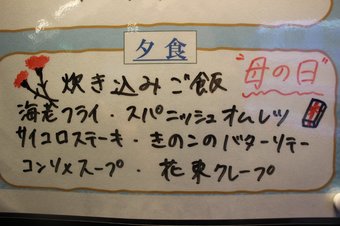 夕食
炊き込みご飯
"母の日"
海老フライ・スパニッシュオムレツ
サイコロステーキ・きのこのバターソテー
コンソメスープ・花束クレープ